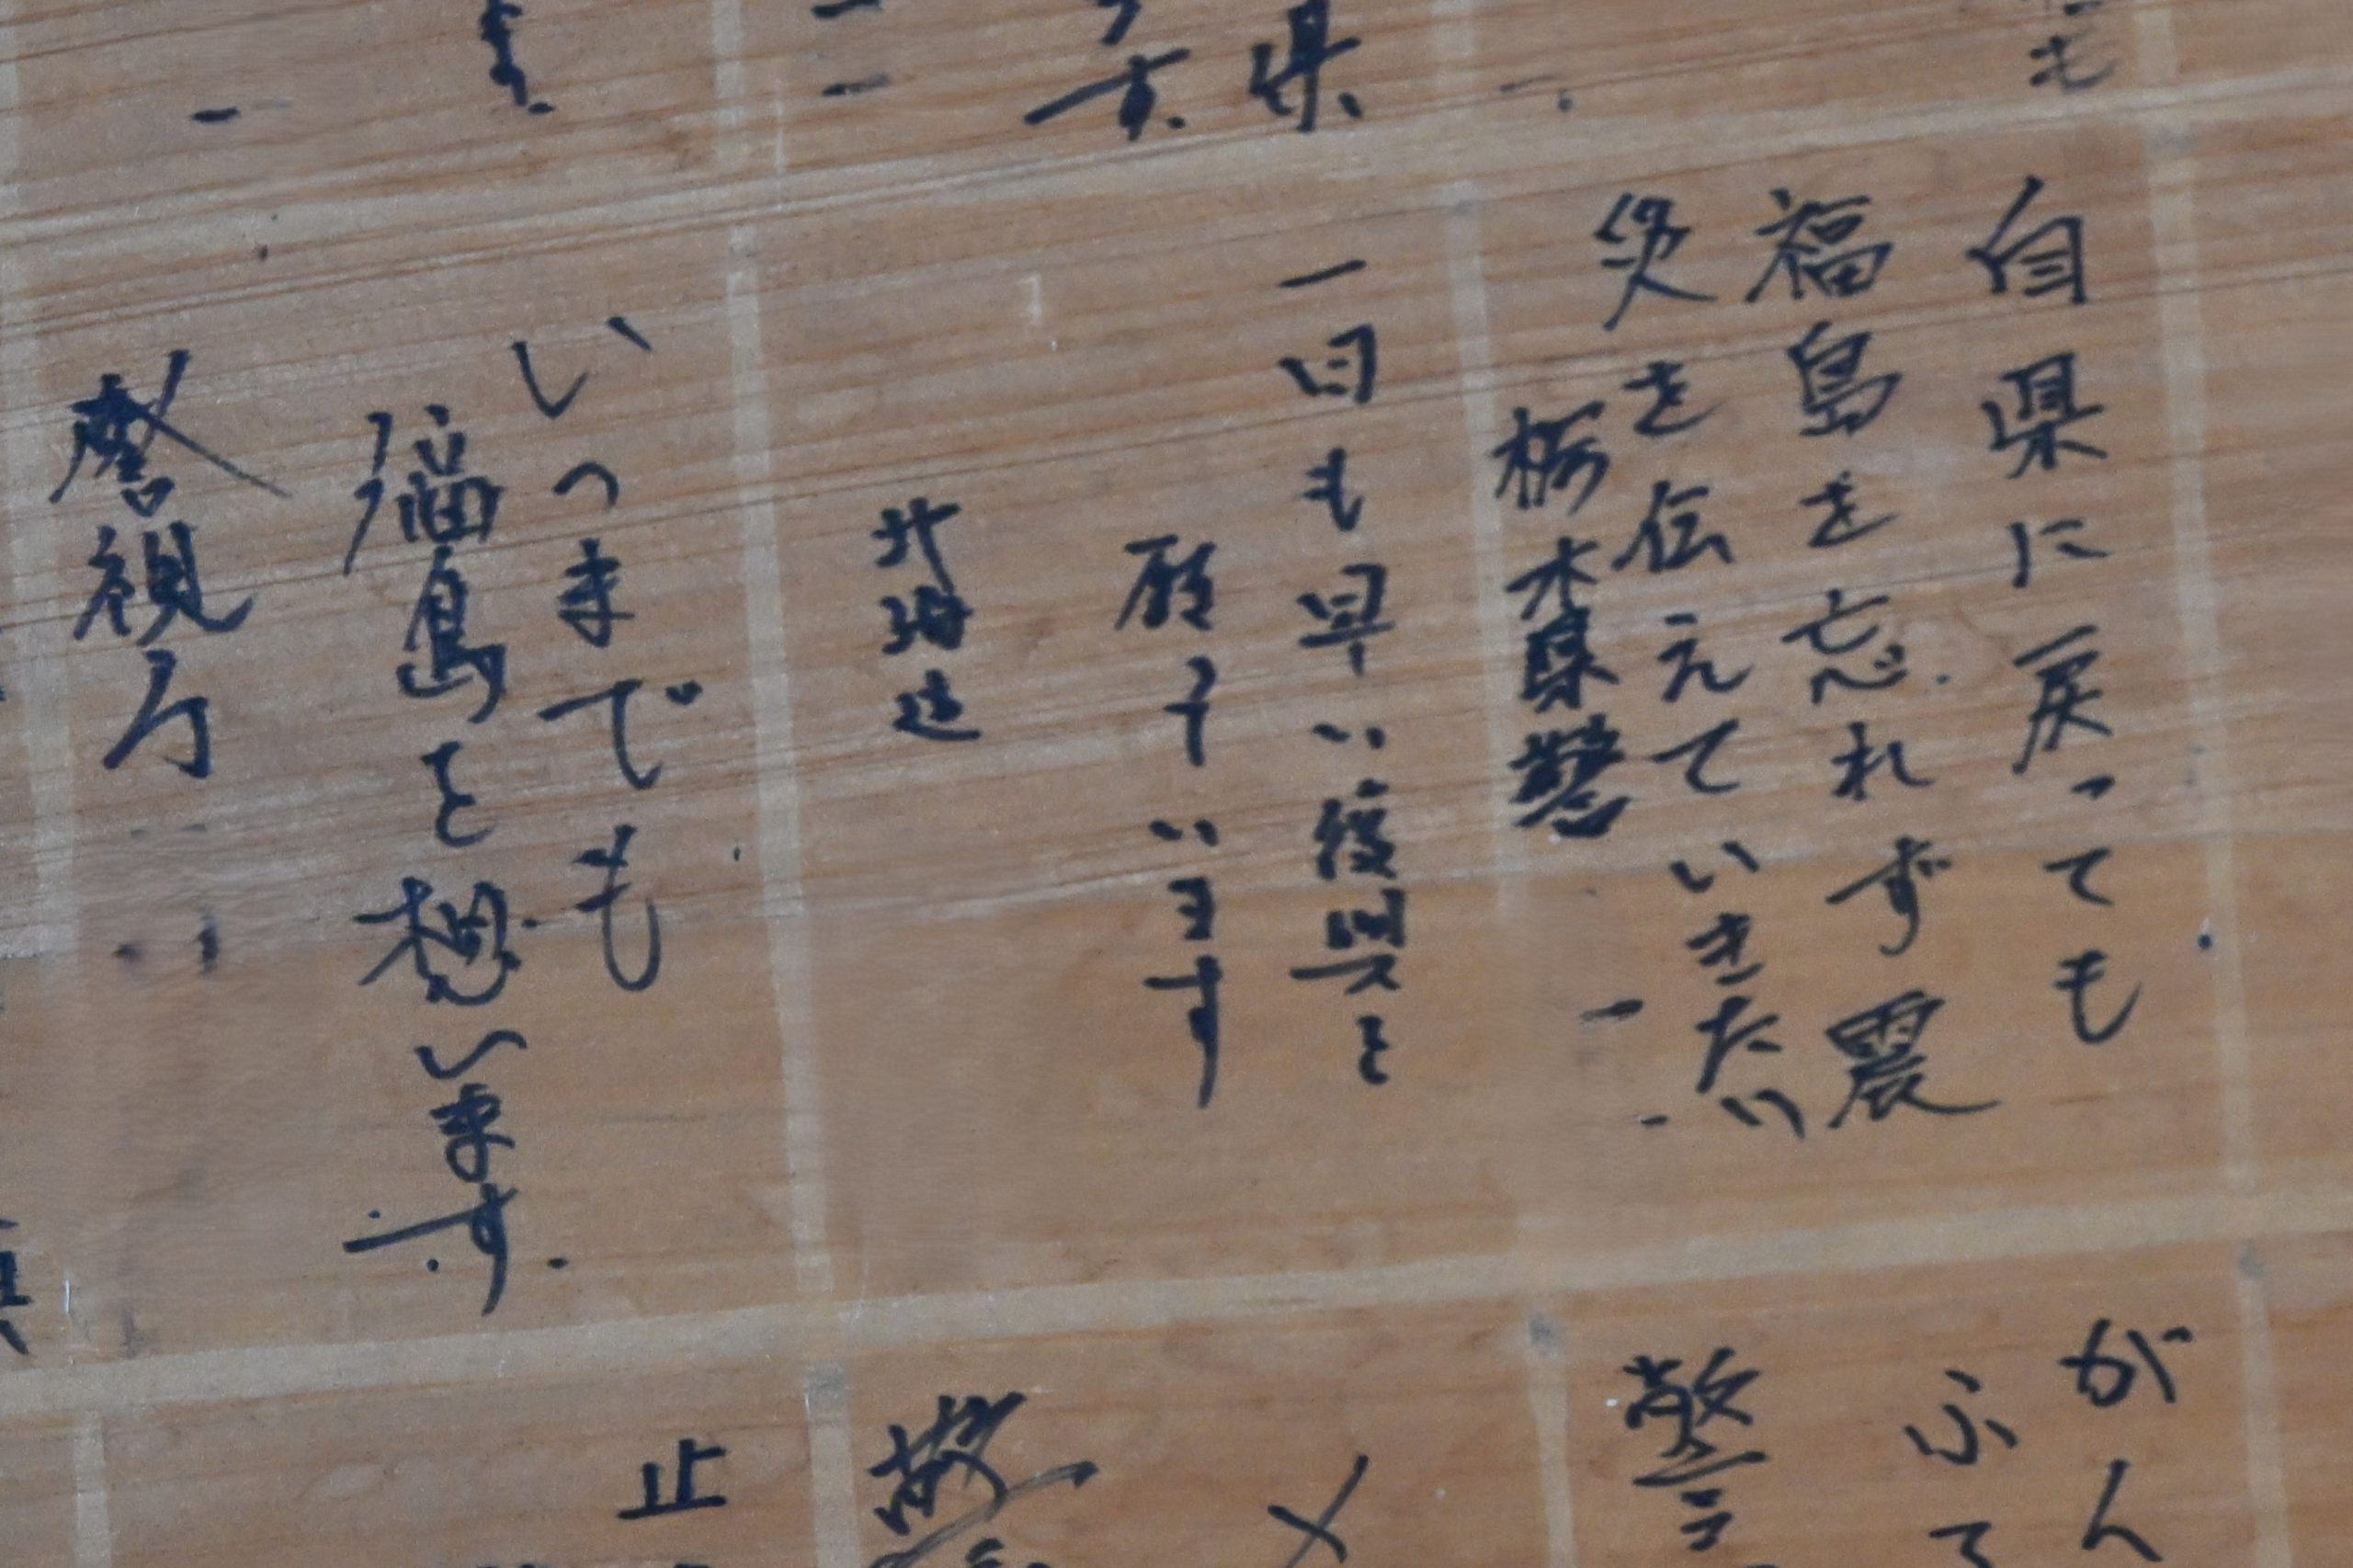 県
す.
も
自県に戻っても
福島を忘れず震
災を伝えていきたい
栃木県警
一日も早い復興を
願っています
北海道
いつまでも
福島を想います.
警視庁
がん
ふ
警
止